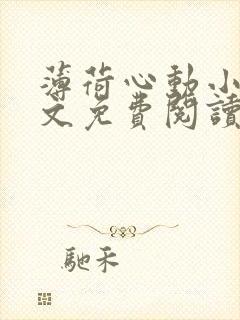 薄荷心動小
文免費閱讀
馳禾